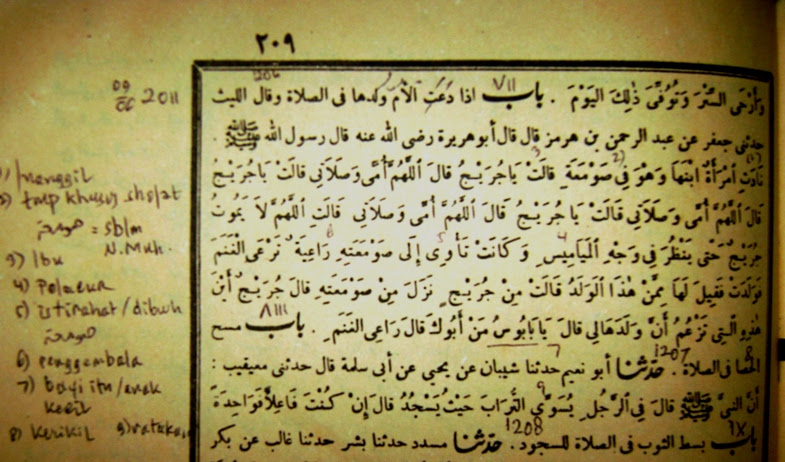 ٢٠٩
1206
09
06 2011
VII
وَأَرْخَى السِّتْرَ وَتُوُفِّىَ ذٰلِكَ اليَوْمَ . باب اذا دَعَتِ الأُمُّ ولدها فى الصلاة وقال الليث
حدثنى جعفر عن عبد الرحمن بن هرمز قال قال أبو هريرة رضى الله عنه قال رسول الله ﷺ .
نَادَتِ امْرَأَةٌ ابْنَهَا وَهُوَ فِى صَوْمَعَةٍ قَالَتْ يَاجُرَيْجُ قَالَ اللّٰهُمَّ أُمِّى وَصَلَاتِى قَالَتْ يَاجُرَيْجُ
قَالَ اللّٰهُمَّ أُمِّى وَصَلَاتِى قَالَتْ يَا جُرَيْجُ قَالَ اللّٰهُمَّ أُمِّى وَصَلَاتِى قَالَتِ اللّٰهُمَّ لاَ يَمُوتُ
جُرَيْجٌ حَتَّى يَنْظُرَ فِى وَجْهِ الْمَيَامِيسِ وَكَانَتْ تَأْوِى إِلَى صَوْمَعَتِهِ رَاعِيَةٌ تَرْعَى الْغَنَمَ
فَوَلَدَتْ فَقِيلَ لَهَا مِمَّنْ هٰذَا الْوَلَدُ قَالَتْ مِنْ جُرَيْجٍ نَزَلَ مِنْ صَوْمَعَتِهِ قَالَ جُرَيْجٌ أَيْنَ
هٰذِهِ الَّتِى تَزْعُمُ أَنَّ وَلَدَهَا لِى قَالَ يَا بَابُوسُ مَنْ أَبُوكَ قَالَ رَاعِى الْغَنَمِ . باب مسح
VIII
الحصا فى الصلاة . حدثنا أبو نعيم حدثنا شيبان عن يحيى عن أبى سلمة قال حدثنى معيقيب :
1207
أَنَّ النبىَّ ﷺ قَالَ فِى الرَّجُلِ يُسَوِّى التُّرَابَ حَيْثُ يَسْجُدُ قَالَ إِنْ كُنْتَ فَاعِلاً فَوَاحِدَةً
1208
IX
باب بسط الثوب فى الصلاة للسجود . حدثنا مسدد حدثنا بشر حدثنا غالب عن بكر
1) manggil
2) tmp khusus sholat
صومعة = sblm
N. Muh.
3) Ibu
4) Pelacur
5) istirahat / dibwh
صومعة
6) penggembala
7) bayi itu / anak
kecil
8) kerikil 9) ratakan